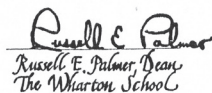 Russell E. Palmer
Russell E. Palmer, Dean
The Wharton School